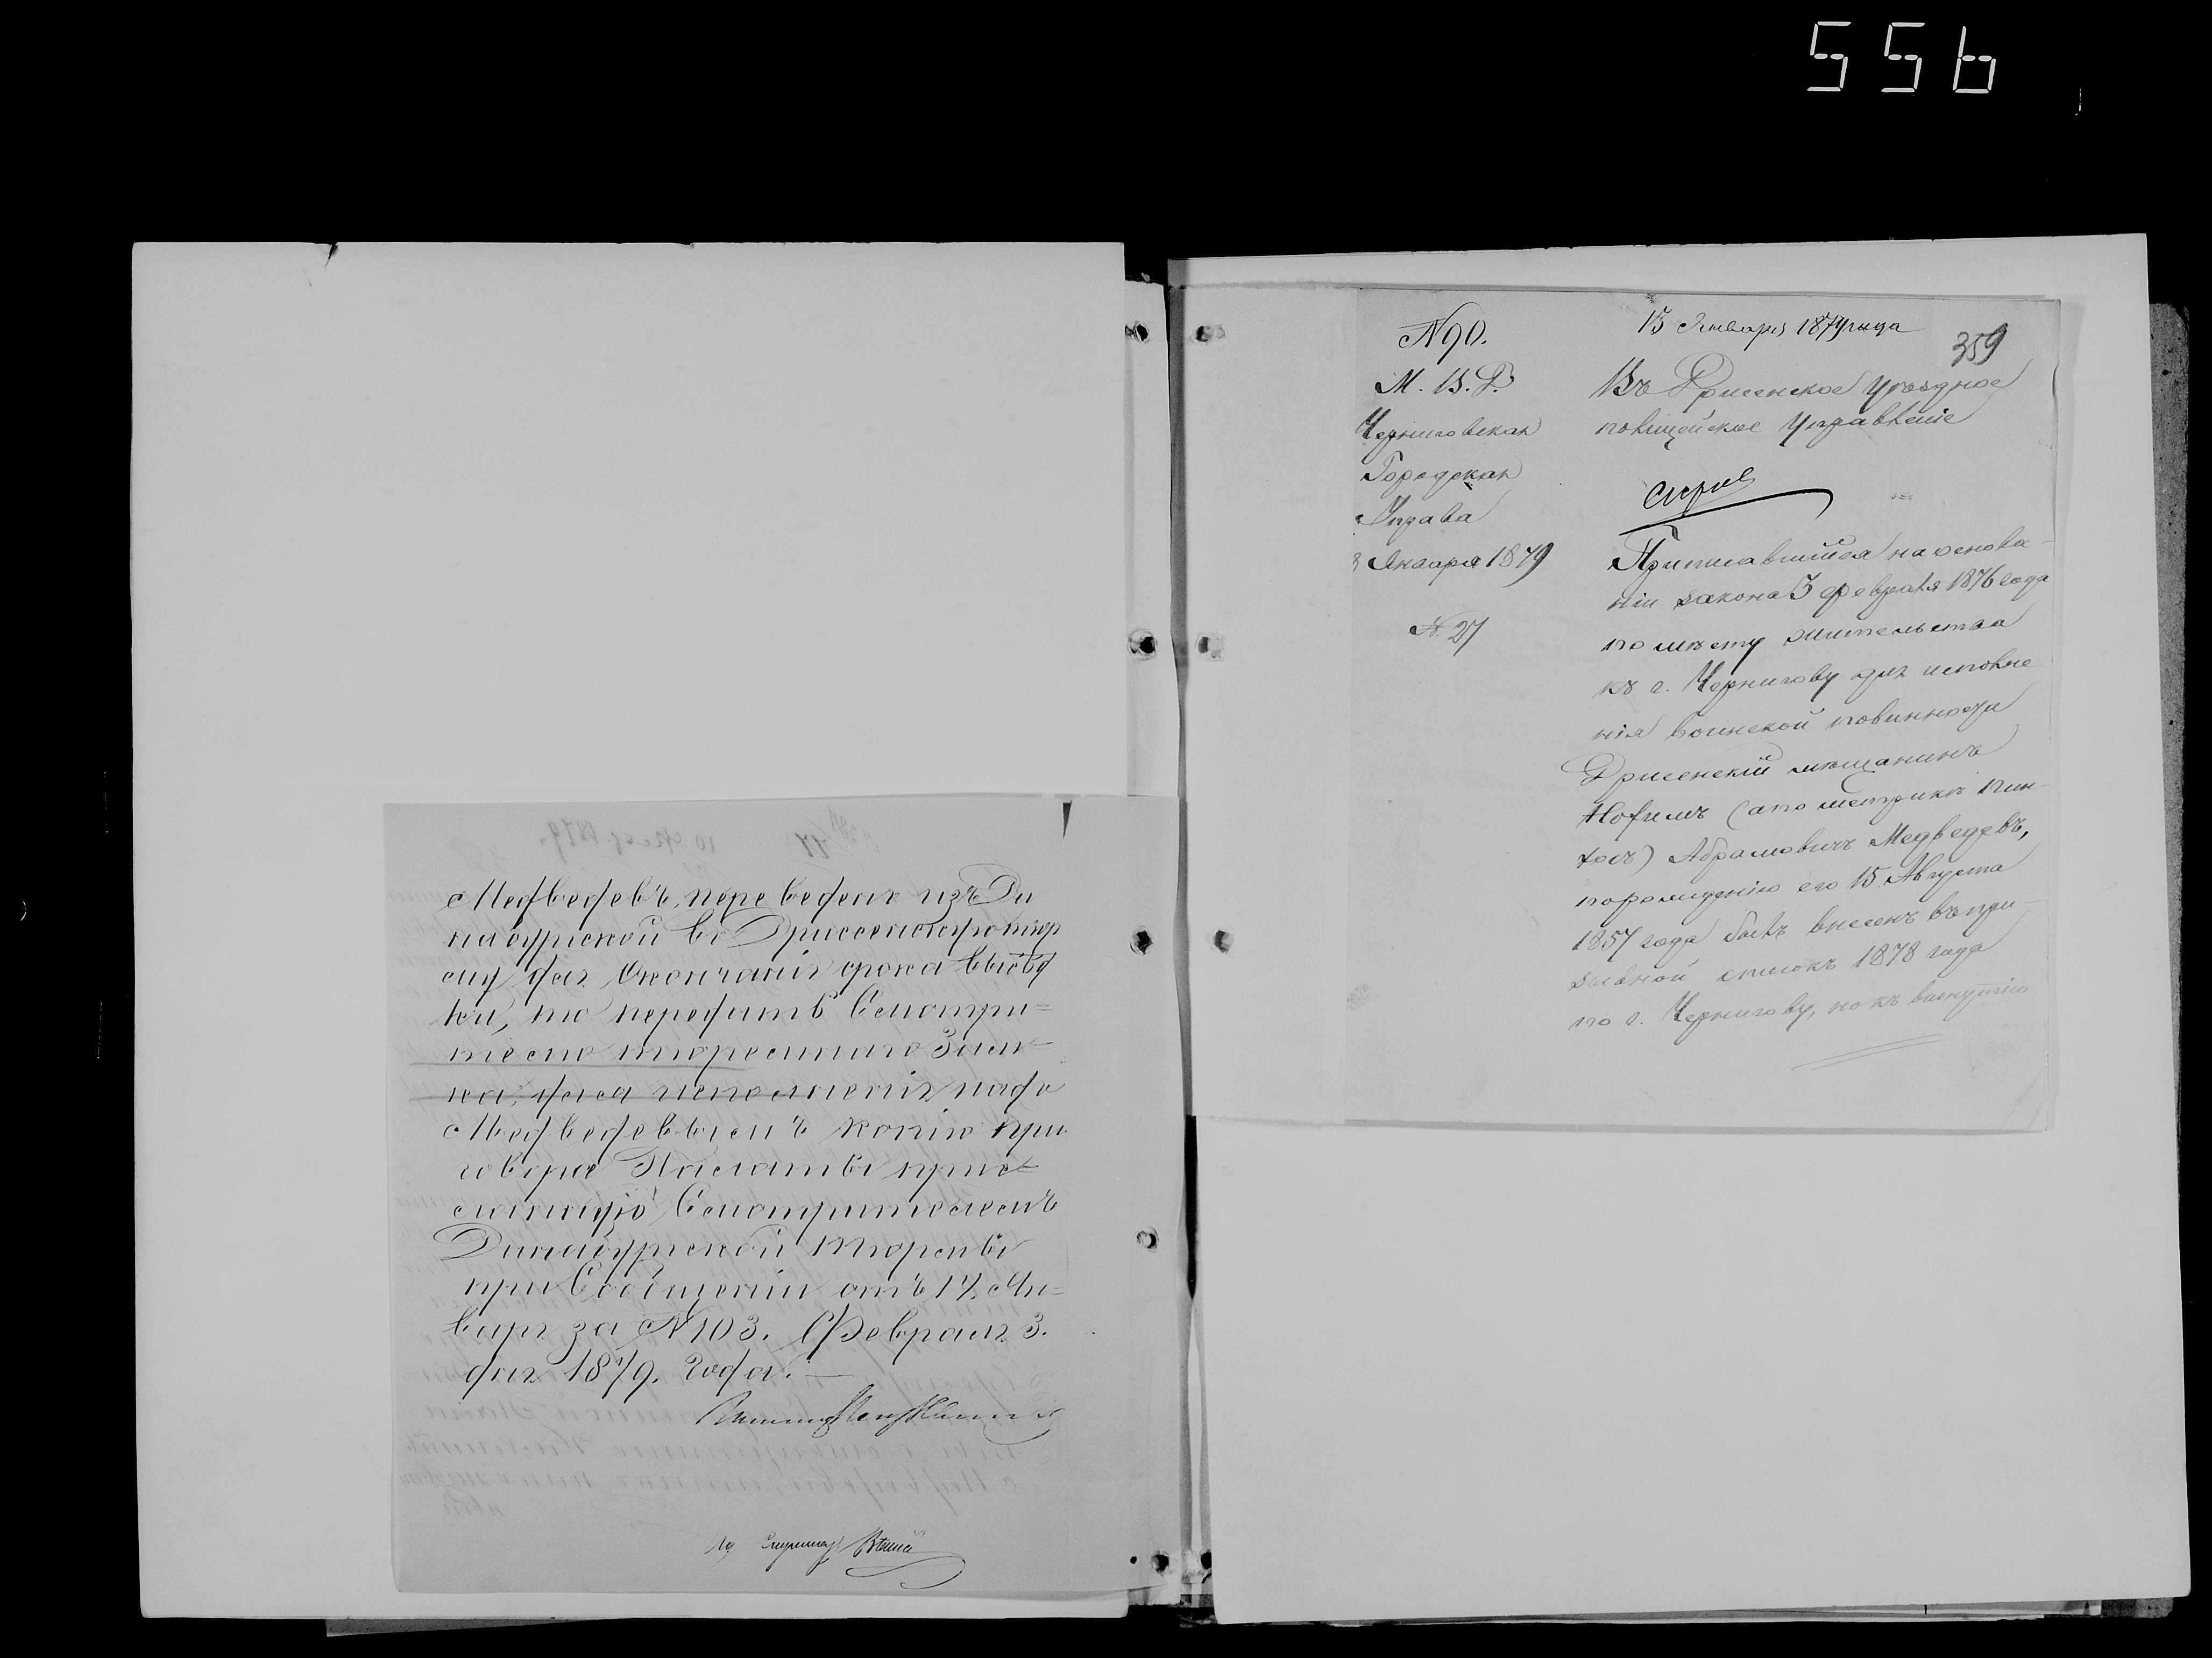 556
Медведевъ, переведенъ изъ Ди
набургской въ Дриссенскую тюр
му для окончанія срока высид
ки, то передать Смотри=
телю тюремнаго Зам
ка, для исполненія надъ
Медведевымъ копію при
говора Палаты при
Смотрителемъ
Динабургской тюрьмы
при Сообщеніи отъ 17. Ян=
варя за №103. Февраля 3.
дня 1879. года. —
№90.
М. В. Д.
Черниговская
Городская
Управа
Января 1879
№. 27
15 Января 1879 года
359
Въ Дрисенское Уѣздное
полицейское Управленіе
Приписавшійся на основа-
ніи закона 3 февраля 1876 года
по мѣсту жительства
къ г. Чернигову для исполне
нія воинской повинности
Дрисенскій мѣщанинъ
(а по метрикѣ Пин-
хосъ) Абрамовичъ Медведевъ,
по рожденію его 15 Августа
1857 года былъ внесенъ въ при-
зывной списокъ 1878 года
по г. Чернигову, но къ вынутію